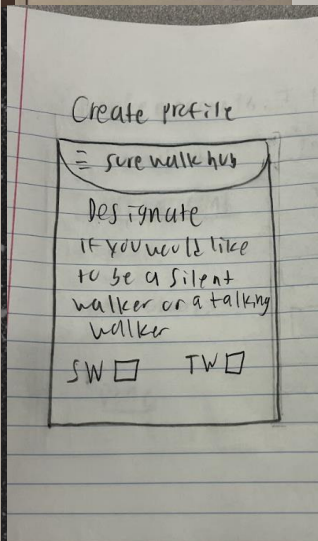 Create profile
☰ surewalk hub
Designate
if you would like
to be a silent
walker or a talking
walker
SW ☐ TW ☐